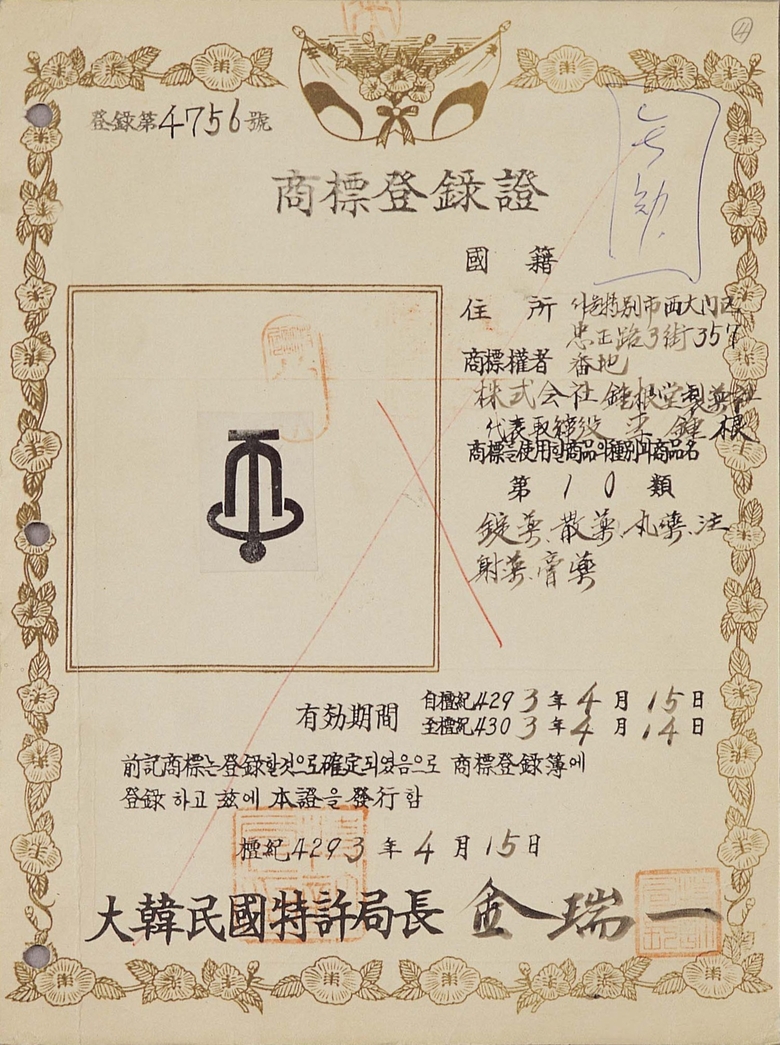 ④
登錄第4756號
商標登錄證
無効
國籍
住所 서울特別市西大門區
忠正路3街35의
番地
商標權者
株式会社 鍾根堂製薬社
代表取締役 李鍾根
商標는使用할商品의種別과商品名
第10類
錠薬、散薬、丸藥、注
射薬、膏薬
有効期間 自檀紀4293年4月15日
至檀紀4303年4月14日
前記商標는登錄할것으로確定되였음으로 商標登錄簿에
登錄하고 玆에 本證을 發行함
檀紀4293年4月15日
大韓民國特許局長 金瑞一